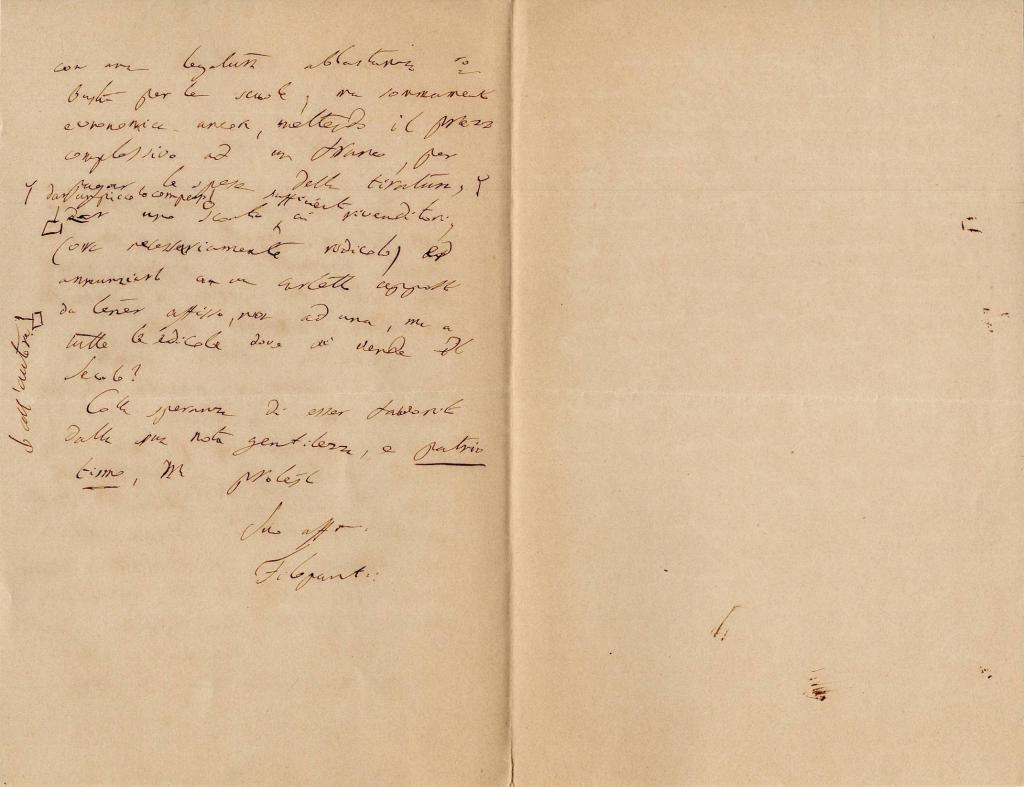 con una legatura abbastanza ro
busta per le scuole, ma sommamente
economica ancora, mettendo il prezzo
complessivo ad un franco, per
pagar le spese della tiratura,
dar un piccolo compenso
all'autore
dar uno sconto sufficiente ai rivenditori,
(ora necessariamente ridicolo) ed
annunziarlo con un cartello apposito
da tener affisso, non ad una, ma a
tutte le edicole dove si vende Il
Secolo?
Colla speranza di esser favorito
dalla sua nota gentilezza, e patrio
tismo, mi protesto
Suo affmo.
Filopanti